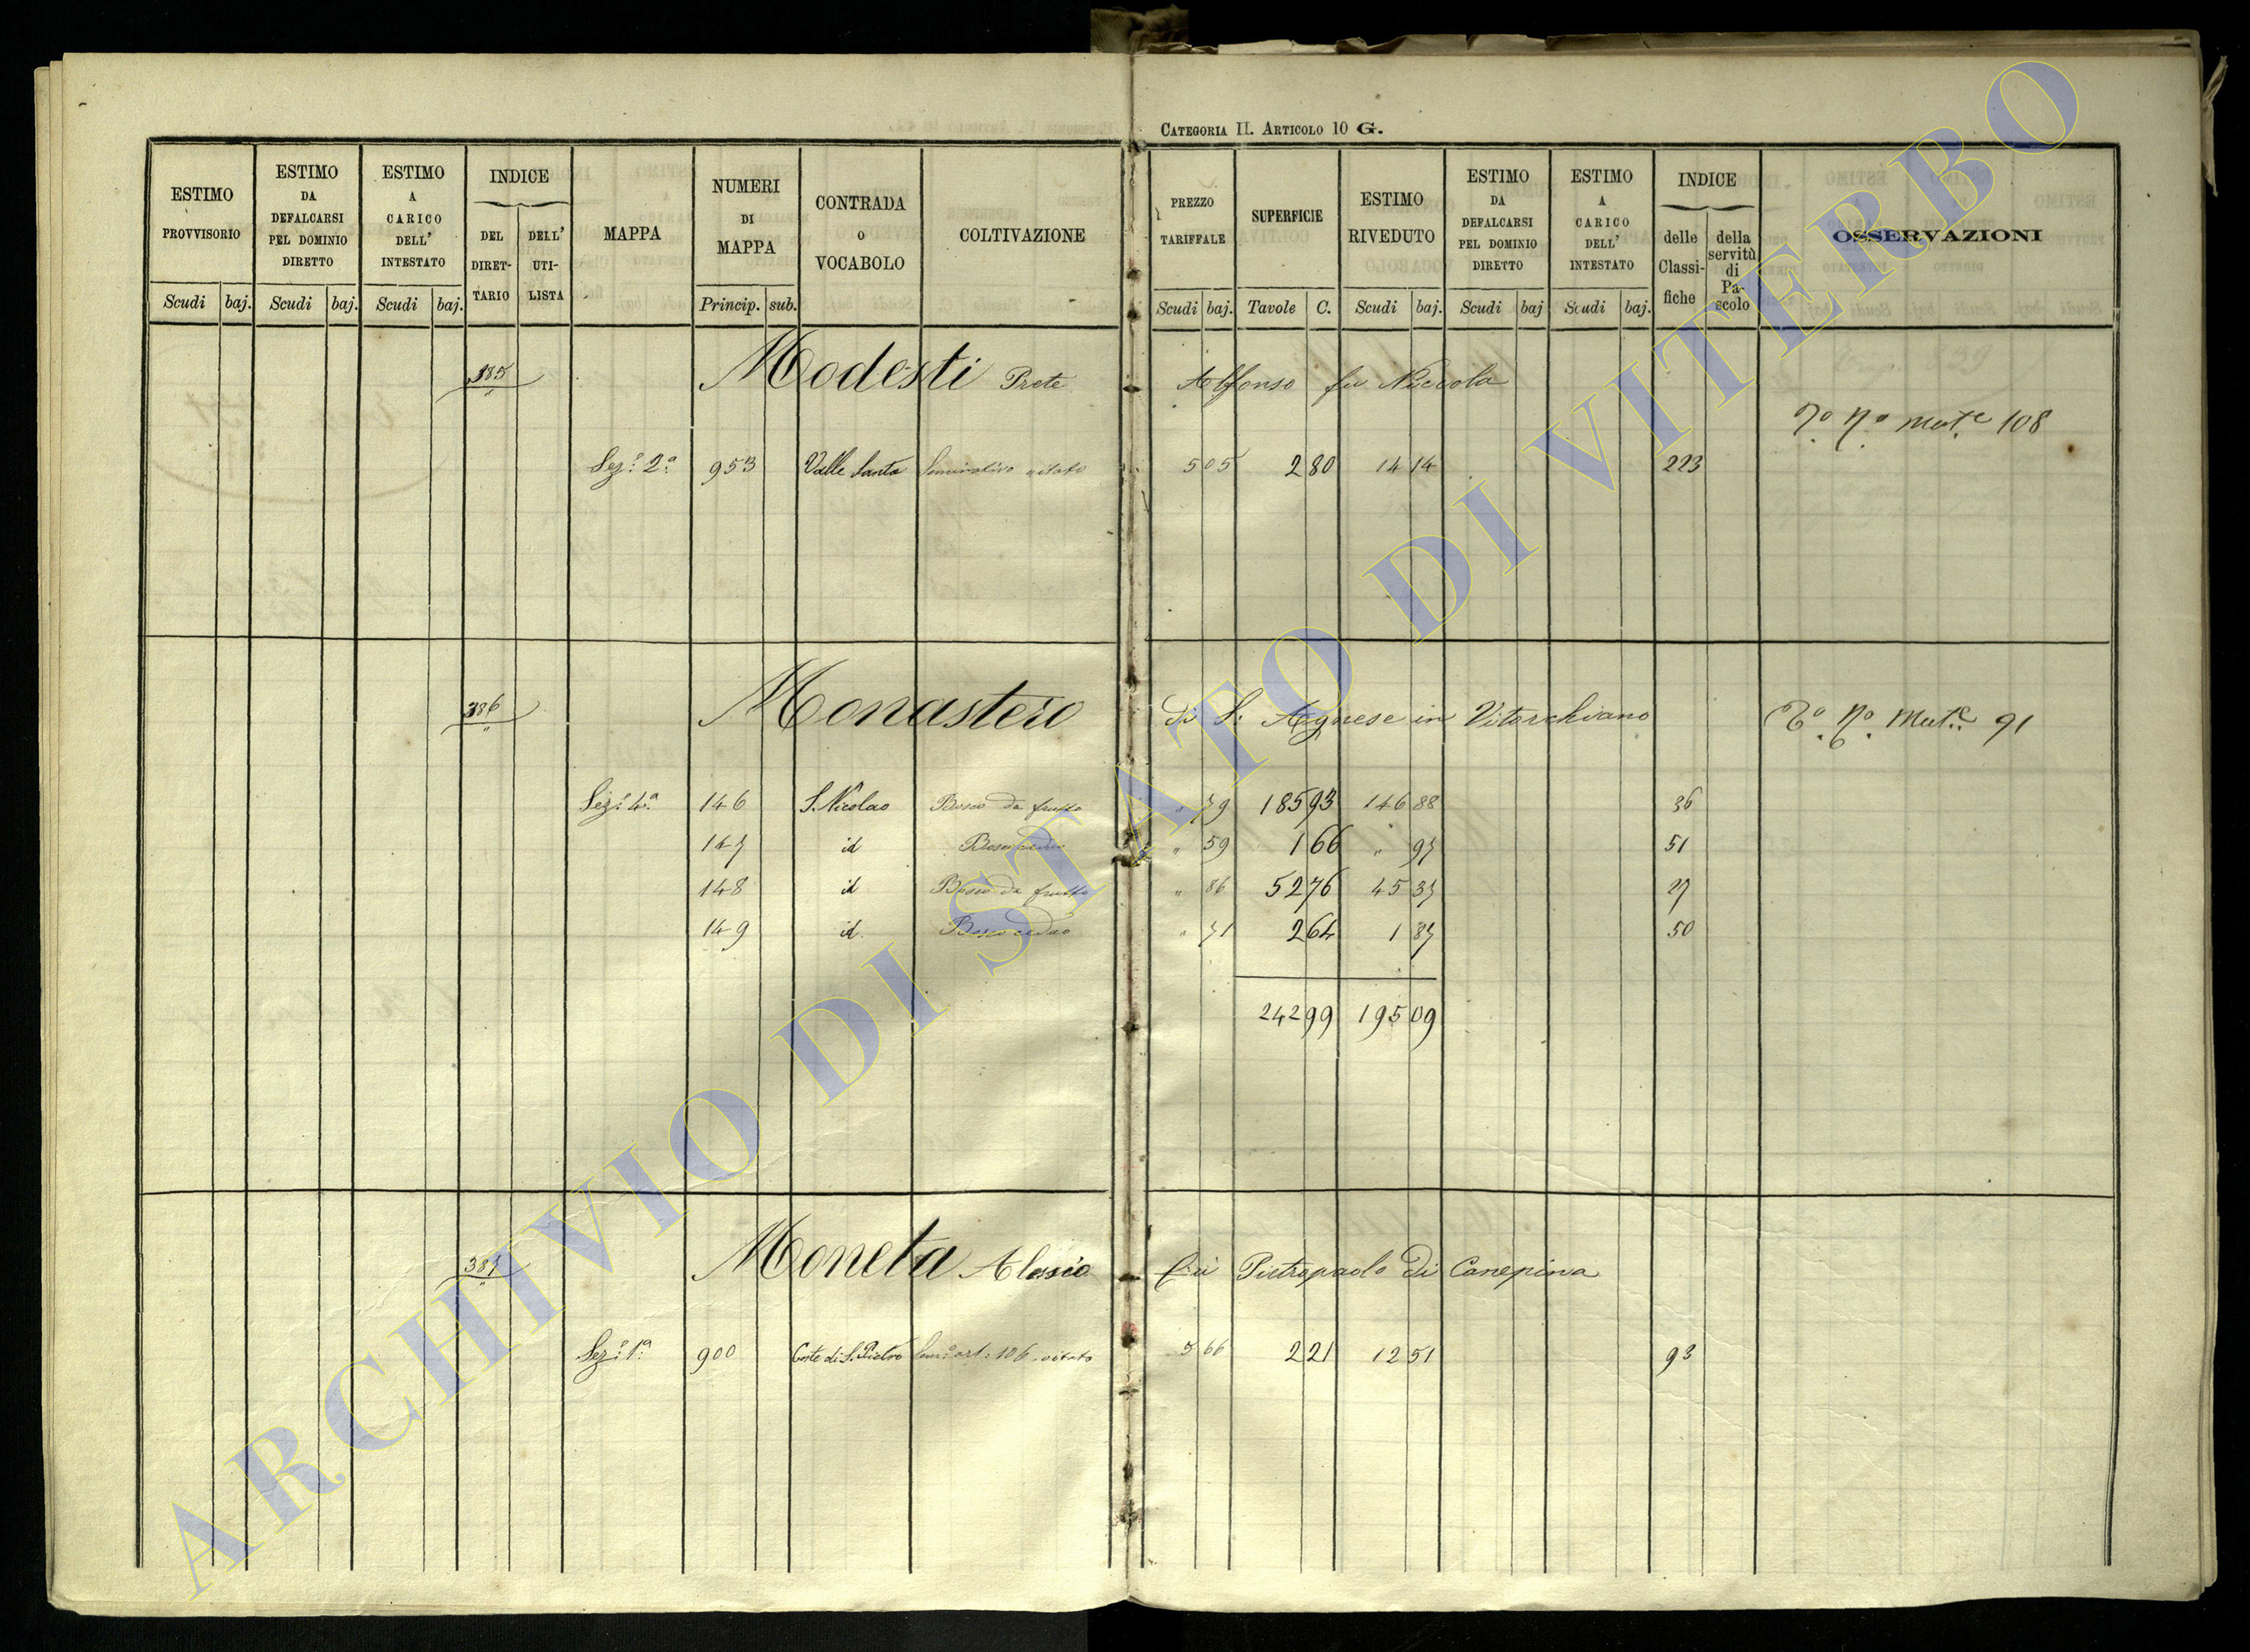 CATEGORIA II. ARTICOLO 10 G.
ESTIMO PROVVISORIO Scudi baj.
ESTIMO DA DEFALCARSI PEL DOMINIO DIRETTO Scudi baj.
ESTIMO A CARICO DELL' INTESTATO Scudi baj.
INDICE DEL DIRETTARIO DELL' UTILISTA
MAPPA
NUMERI DI MAPPA Princip. sub.
CONTRADA O VOCABOLO
COLTIVAZIONE
PREZZO TARIFFALE Scudi baj.
SUPERFICIE Tavole C.
ESTIMO RIVEDUTO Scudi baj.
ESTIMO DA DEFALCARSI PEL DOMINIO DIRETTO Scudi baj
ESTIMO A CARICO DELL' INTESTATO Scudi baj.
INDICE delle Classifiche della servitù di Pascolo
OSSERVAZIONI
385 Modesti Prete Alfonso fu Niccola
N° Mut.e 108
Sez.e 2a 953 Valle Santa Seminativo vitato 5 05 2 80 14 14 223
386 Monastero di S. Agnese in Vitorchiano N° Mut.e 91
Sez.e 4a 146 S. Nicolao Bosco da frutto " 79 185 93 146 88 36
147 id Bosco ceduo " 59 1 66 " 97 51
148 id Bosco da frutto " 86 52 76 45 37 27
149 id Bosco ceduo " 71 2 64 1 87 50
242 99 195 09
387 Moneta Alessio fu Pietropaolo di Canepina
Sez.e 1a 900 Coste di S. Pietro Sem.o art: 106. vitato 5 66 2 21 12 51 93
ARCHIVIO DI STATO DI VITERBO